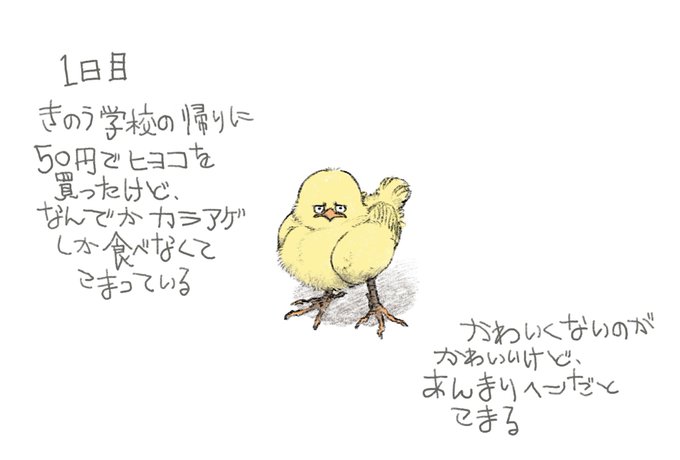 1日目
きのう学校の帰りに
50円でヒヨコを
買ったけど、
なんでかカラアゲ
しか食べなくて
こまっている
かわいくないのが
かわいいけど、
あんまりヘンだと
こまる